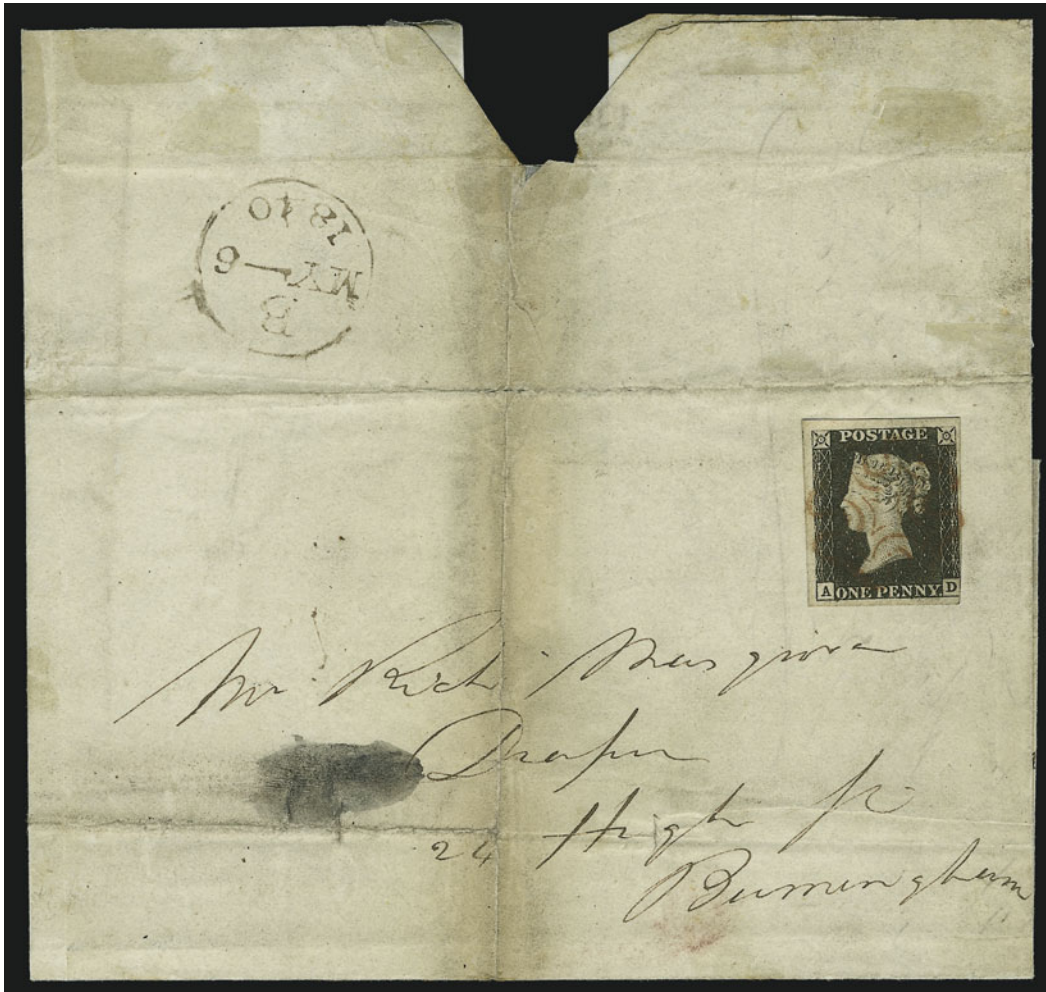 1840
MY 6
B
POSTAGE
A ONE PENNY D
Mr. Richd Musgrove
Draper
24 High St
Birmingham